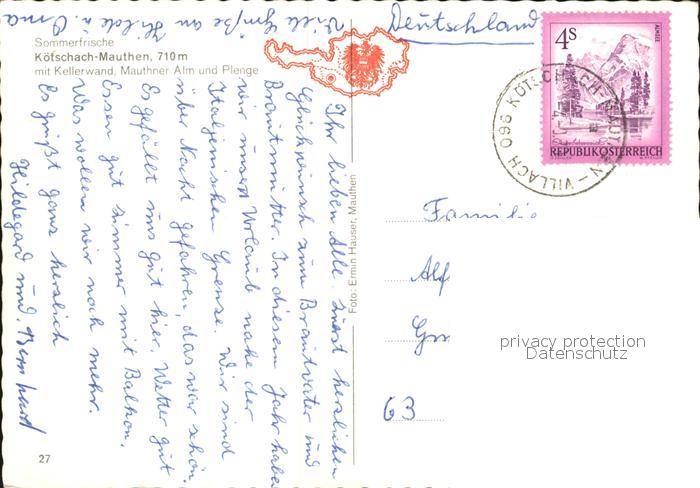 Viele Grüße an Hilde u. Oma
Sommerfrische
Kötschach-Mauthen, 710 m
mit Kellerwand, Mauthner Alm und Plenge
Ihr lieben Alle. Zuerst herzlichen
Glückwunsch zum Brautvater und
Brautmutter. In diesem Jahr haben
wir unsern Urlaub nahe der
Italjenischen Grenze. Wir sind
über Nacht gefahren, das war schön.
Es gefällt uns gut hier. Wetter gut
Essen gut Zimmer mit Balkon,
Was wollen wir noch mehr.
Es grüßt ganz herzlich
Hildegard und Bernhard
27
Foto: Ermin Hauser, Mauthen
Deutschland
4S
ALMSEE
REPUBLIK ÖSTERREICH
096 KÖTSCHACH-MAUTHEN - VILLACH
Familie
Alf
63
privacy protection
Datenschutz